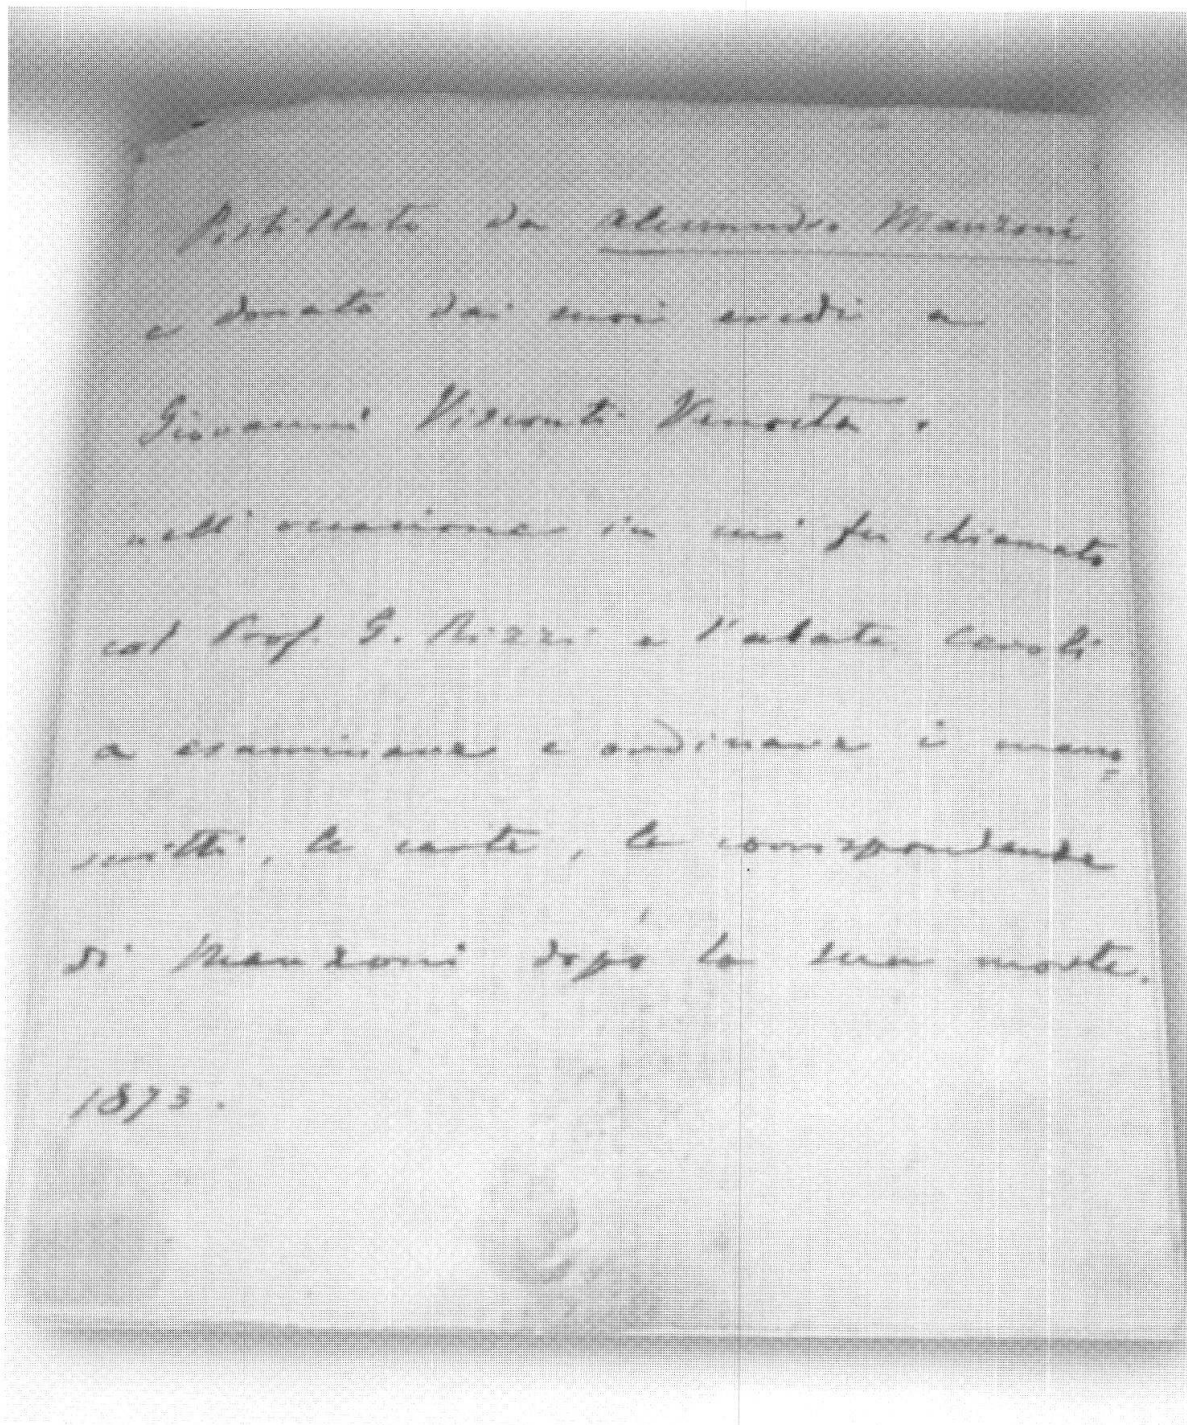 Postillato da Alessandro Manzoni
e donato dai suoi eredi a
Giovanni Visconti Venosta.
nell'occasione in cui fu chiamato
col Prof. G. Rizzi e l'abate Ceroli
a esaminare e ordinare i mano
scritti, le carte, le corrispondenze
di Manzoni dopo la sua morte.
1873.